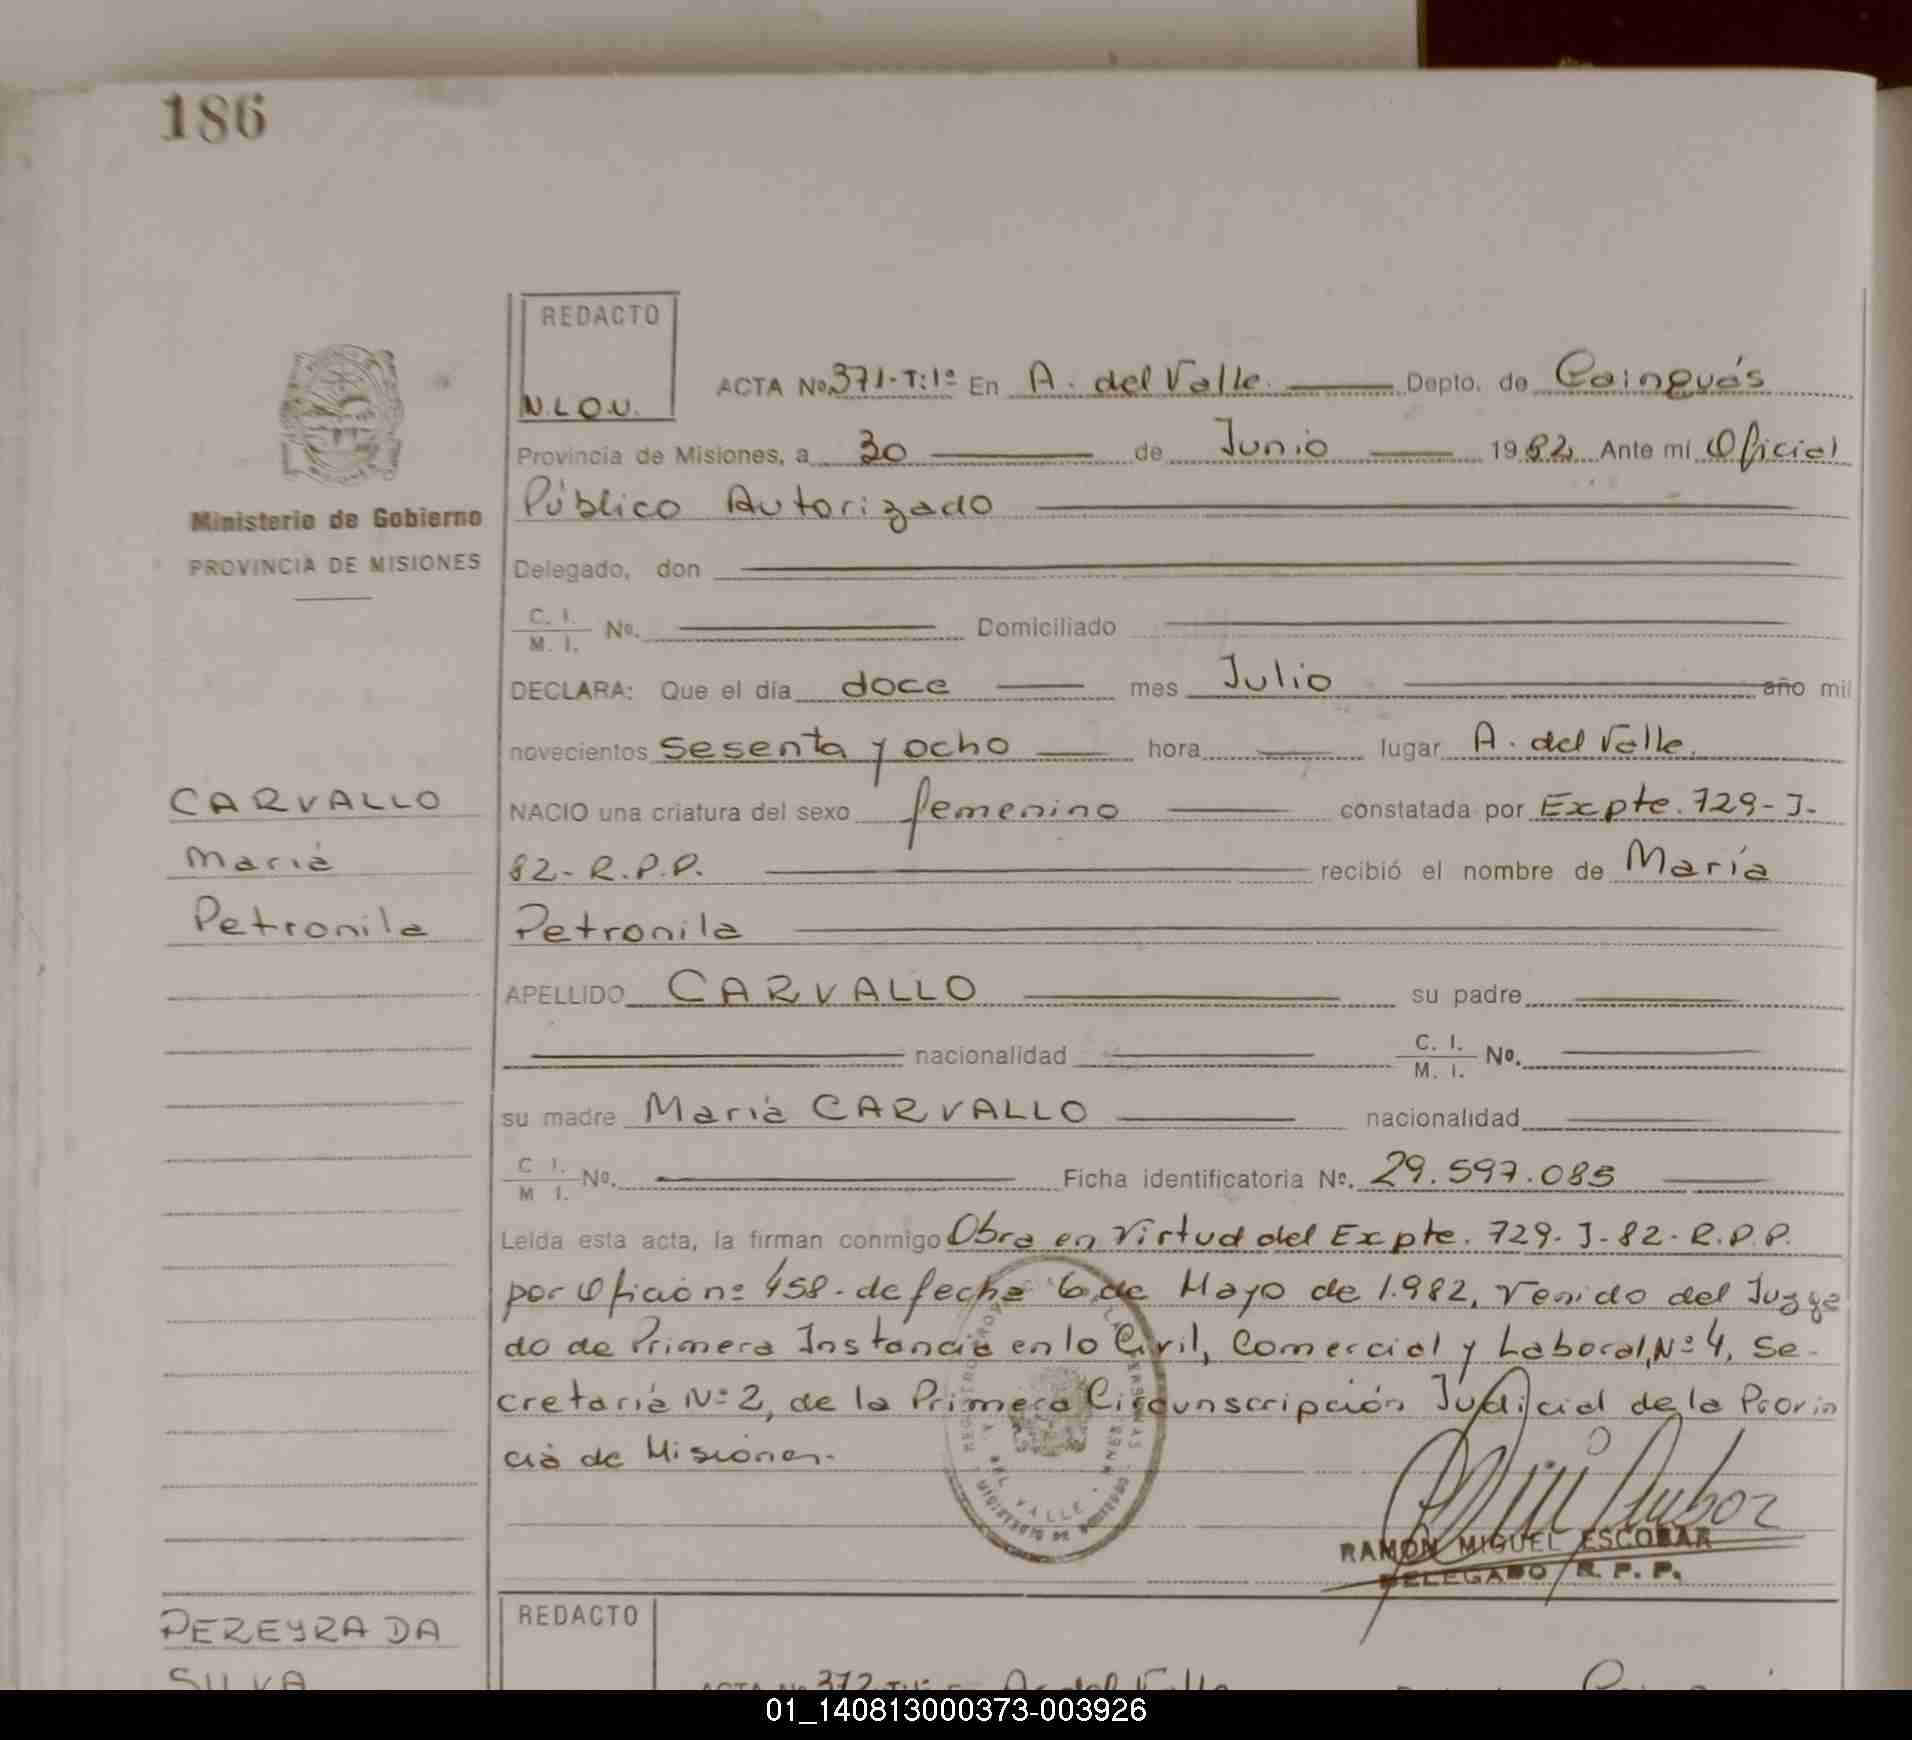 186
REDACTO
N.L.O.U.
ACTA No. 371-T:1º En A. del Valle. Depto. de Cainguás
Provincia de Misiones, a 30 de Junio 1982 Ante mí Oficial
Público Autorizado
Ministerio de Gobierno
PROVINCIA DE MISIONES
Delegado, don
C. I.
M. I. No. Domiciliado
DECLARA: Que el día doce mes Julio año mil
novecientos sesenta y ocho hora lugar A. del Valle.
CARVALLO
María
Petronila
NACIO una criatura del sexo femenino constatada por Expte. 729-J-
82-R.P.P. recibió el nombre de María
Petronila
APELLIDO CARVALLO su padre
nacionalidad C. I.
M. I. No.
su madre María CARVALLO nacionalidad
C I.
M I. No. Ficha identificatoria No. 29.597.085
Leída esta acta, la firman conmigo Obra en Virtud del Expte. 729-J-82-R.P.P.
por Oficio nº 458. de fecha 6 de Mayo de 1.982, Venido del Juzga
do de Primera Instancia en lo Civil, Comercial y Laboral, Nº 4, Se-
cretaría Nº 2, de la Primera Circunscripción Judicial de la Provin
cia de Misiones.
RAMON MIGUEL ESCOBAR
DELEGADO R. P. P.
PEREYRA DA
SILVA
REDACTO
ACTA No 372-T:1º En A. del Valle
01_140813000373-003926